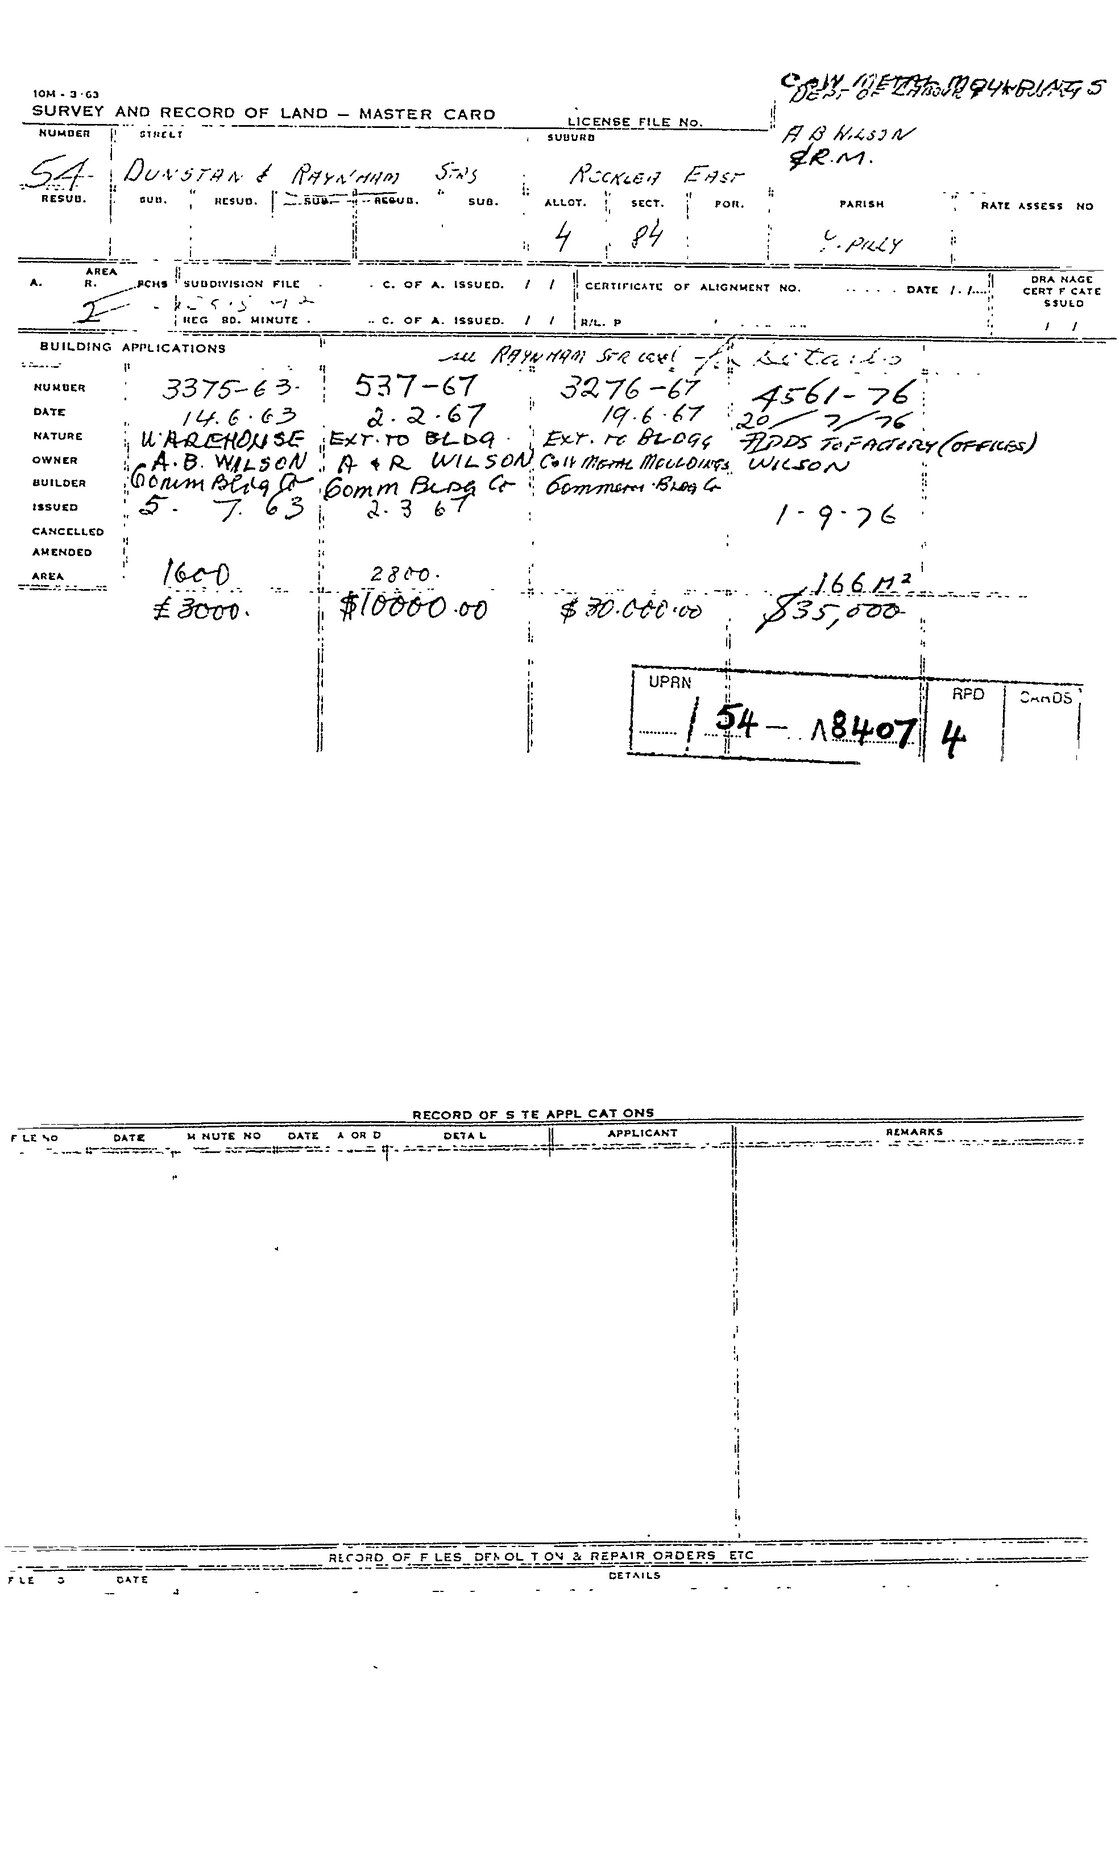 10M - 3-63
SURVEY AND RECORD OF LAND — MASTER CARD
LICENSE FILE No.
METAL MOULDINGS
A B WILSON
& R.M.
NUMBER STREET SUBURB
54 DUNSTAN & RAYNHAM STRS ROCKLEA EAST
RESUB. SUB. RESUB. SUB. RESUB. SUB. ALLOT. SECT. POR. PARISH RATE ASSESS NO
4 84 Y. PILLY
AREA
A. R. PCHS SUBDIVISION FILE C. OF A. ISSUED. / / CERTIFICATE OF ALIGNMENT NO. DATE / / DRA NAGE CERT F CATE SSUED
2
REG BD. MINUTE C. OF A. ISSUED. / / R/L. P / /
BUILDING APPLICATIONS
see RAYNHAM STR card for details
NUMBER 3375-63. 537-67 3276-67 4561-76
DATE 14.6.63 2.2.67 19.6.67 20/7/76
NATURE WAREHOUSE EXT. TO BLDG. EXT. TO BLDGG ADDS TO FACTORY (OFFICES)
OWNER A.B. WILSON A & R WILSON METAL MOULDINGS WILSON
BUILDER Comm Bldg Co Comm BLDG Co Commerc. BLDG Co
ISSUED 5. 7. 63 2.3 67 1-9-76
CANCELLED
AMENDED
AREA 1600 2800. 166 M²
£3000. $10000.00 $30.000.00 $35,000
UPRN RPD CARDS
/ 54 — 8407 4
RECORD OF S TE APPL CAT ONS
F LE NO DATE M NUTE NO DATE A OR D DETA L APPLICANT REMARKS
RECORD OF F LES DEMOL T ON & REPAIR ORDERS ETC
F LE O DATE DETAILS